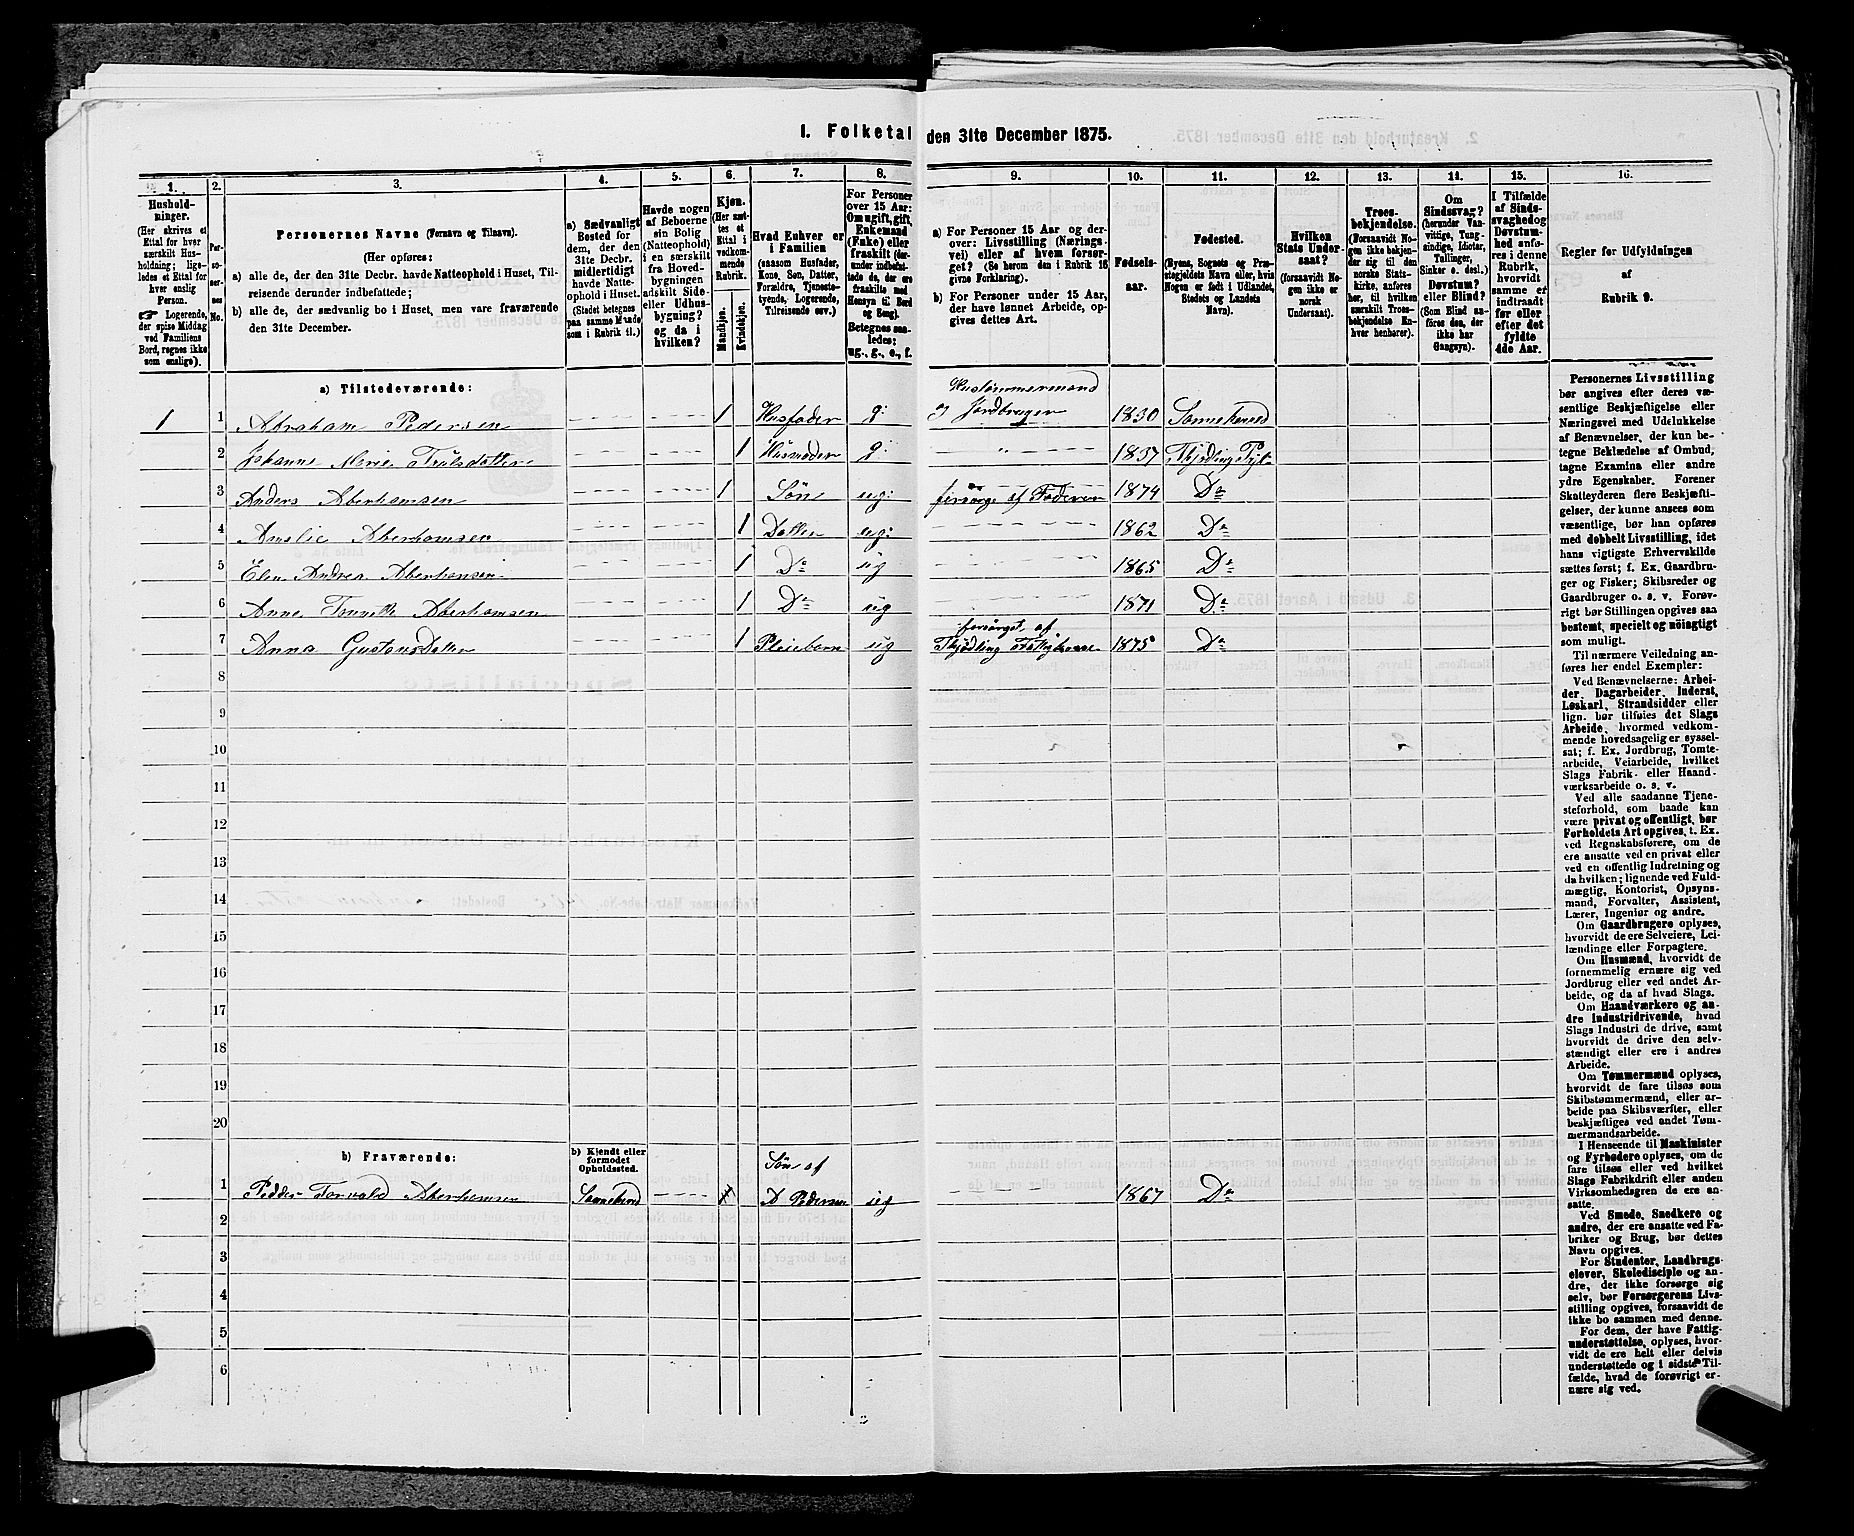 1. Folketal den 31te December 1875.
1.
Husholdninger.
(Her skrives et
Ettal for hver
særskilt Husholdning;
ligeledes et Ettal for
hver enslig
Person.
☞ Logerende,
der spise Middag
ved Familiens
Bord, regnes ikke
som enslige).
2.
Personernes
No.
3.
Personernes Navne (Fornavn og Tilnavn).
(Her opføres:
a) alle de, der den 31te Decbr. havde Natteophold i Huset, Tilreisende derunder indbefattede;
b) alle de, der sædvanlig bo i Huset, men vare fraværende
den 31te December.
4.
a) Sædvanligt
Bosted for
dem, der den
31te Decbr.
midlertidigt
havde Natteophold
i Huset.
(Stedet betegnes
paa samme Maade
som i Rubrik 11.)
5.
Havde nogen
af Beboerne
sin Bolig
(Natteophold)
i en særskilt
fra Hovedbygningen
adskilt Side- eller Udhusbygning?
og da i
hvilken?
6.
Kjøn.
(Her sættes et
Ettal i
vedkommende
Rubrik.
Mandkjøn.
Kvindekjøn.
7.
Hvad Enhver er
i Familien
(saasom Husfader,
Kone, Søn, Datter,
Forældre, Tjenestetyende,
Logerende,
Tilreisende osv.)
8.
For Personer
over 15 Aar:
Om ugift, gift,
Enkemand
(Enke) eller
fraskilt (derunder
indbefattede
de, der ere
fraskilte med
Hensyn til Bord
og Seng).
Betegnes saaledes:
ug., g., e., f.
9.
a) For Personer 15 Aar og derover:
Livsstilling (Næringsvei)
eller af hvem forsørget?
(Se herom den i Rubrik 16
givne Forklaring).
b) For Personer under 15 Aar,
der have lønnet Arbeide, opgives
dettes Art.
10.
Fødselsaar.
11.
Fødested.
(Byens, Sognets og Præstegjeldets
Navn eller, hvis
Nogen er født i Udlandet,
Stedets og Landets
Navn).
12.
Hvilken
Stats Undersaat?
(forsaavidt Nogen
ikke er
norsk
Undersaat).
13.
Troesbekjendelse.
(Forsaavidt Nogen
ikke bekjender
sig til den
norske Statskirke,
anføres
her, til hvilken
særskilt Troesbekjendelse
Enhver henhører).
14.
Om
Sindssvag?
(herunder Vanvittige,
Tungsindige,
Idioter,
Tullinger,
Sinker o. desl.)
Døvstum?
eller Blind?
(Som Blind anføres
den, der
ikke har
Gangsyn).
15.
I Tilfælde
af Sindssvaghed og
Døvstumhed
anføres
i denne
Rubrik,
hvorvidt
samme er
indtraadt
før eller
efter det
fyldte
4de Aar.
16.
Regler for Udfyldningen
af
Rubrik 9.
a) Tilstedeværende:
1 1 Abraham Pedersen - - - - - - 1 Husfader g: Hustømmermand og Jordbruger 1830 Sannekered
2 Johanne Marie Trulsdatter - - - - - - 1 Husmoder g: - - " - - 1837 Thjødling Pgl.
3 Anders Aberhamsen - - - - - - 1 Søn ug: forsørge af Faderen 1874 Do
4 Amalie Aberhamsen - - - - - - 1 Datter ug: - - - - 1862 Do
5 Elen Andrea Aberhamsen - - - - - - 1 Do ug - - - - 1865 Do
6 Anne Tonnette Aberhamsen - - - - - - 1 Do ug - - - - 1871 Do
7 Anna Gustavsdatter - - - - - - 1 Pleiebarn ug forsørget af Thjødling Fattigkasse 1875 Do
8
9
10
11
12
13
14
15
16
17
18
19
20
b) Fraværende:
b) Kjendt eller
formodet
Opholdssted.
1 Pedder Torvald Aberhamsen Sannekered - - - - 1 Søn af A Pedersen ug - - - - 1867 Do
2
3
4
5
6
Personernes Livsstilling
bør angives efter deres væsentlige
Beskjæftigelse eller
Næringsvei med Udelukkelse
af Benævnelser, der kun betegne
Beklædelse af Ombud,
tagne Examina eller andre
ydre Egenskaber. Forener
Skatteyderen flere Beskjæftigelser,
der kunne ansees som
væsentlige, bør han opføres
med dobbelt Livsstilling, idet
hans vigtigste Erhvervskilde
sættes først; f. Ex. Gaardbruger
og Fisker; Skibsreder og
Gaardbruger o. s. v. Forøvrigt
bør Stillingen opgives saa
bestemt, specielt og nöiagtigt
som muligt.
Til nærmere Veiledning anføres
her endel Exempler:
Ved Benævnelserne: Arbeider,
Dagarbeider, Inderst,
Løskarl, Strandsidder eller
lign. bør tilføies det Slags
Arbeide, hvormed vedkommende
hovedsagelig er sysselsat;
f. Ex. Jordbrug, Tomtearbeide,
Veiarbeide, hvilket
Slags Fabrik- eller Haandværksarbeide
o. s. v.
Ved alle saadanne Tjenesteforhold,
som baade kan
være privat og offentligt, bør
Forholdets Art opgives, t. Ex.
ved Regnskabsførere, om de
ere ansatte ved en privat eller
ved en offentlig Indretning og
da hvilken; lignende ved Fuldmægtig,
Kontorist, Opsynsmand,
Forvalter, Assistent,
Lærer, Ingeniør og andre.
Om Gaardbrugere oplyses,
hvorvidt de ere Selveiere, Leilændinge
eller Forpagtere.
Om Husmænd, hvorvidt de
fornemmelig ernære sig ved
Jordbrug eller ved andet Arbeide,
og da af hvad Slags.
Om Haandværkere og andre
Industridrivende, hvad
Slags Industri de drive, samt
hvorvidt de drive den selvstændigt
eller ere i andres
Arbeide.
Om Tømmermænd oplyses,
hvorvidt de fare tilsøs som
Skibstømmermænd, eller arbeide
paa Skibsværfter, eller
beskjæftiges ved andet Tømmermandsarbeide.
I Henseende til Maskinister
og Fyrbødere oplyses, om de
fare tilsøs eller ved hvilket
Slags Fabrikdrift eller anden
Virksomhed de ere ansatte.
Ved Smede, Snedkere og
andre, der ere ansatte ved Fabriker
og Brug, bør dettes
Navn opgives.
For Studenter, Landbrugselever,
Skoledisciple og andre,
der ikke forsørge sig
selv, bør Forsørgerens Livsstilling
opgives, forsaavidt de
ikke bo sammen med denne.
For dem, der have Fattigunderstøttelse,
oplyses, hvorvidt
de ere helt eller delvis
understøttede og i sidste Tilfælde,
hvad de forøvrigt ernære
sig ved.